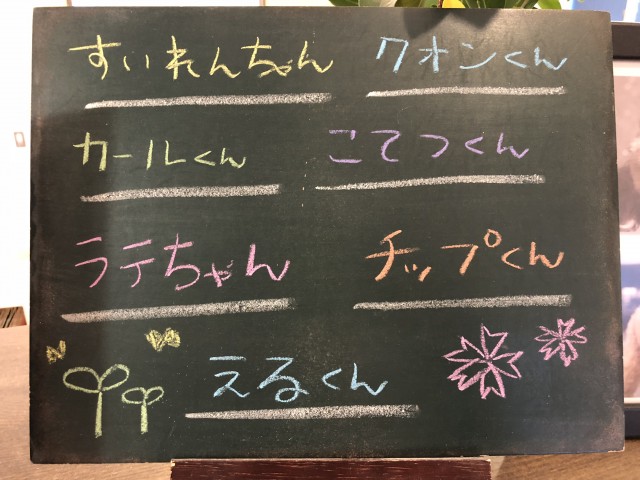 すいれんちゃん クオンくん
カールくん こてつくん
ラテちゃん チップくん
えるくん